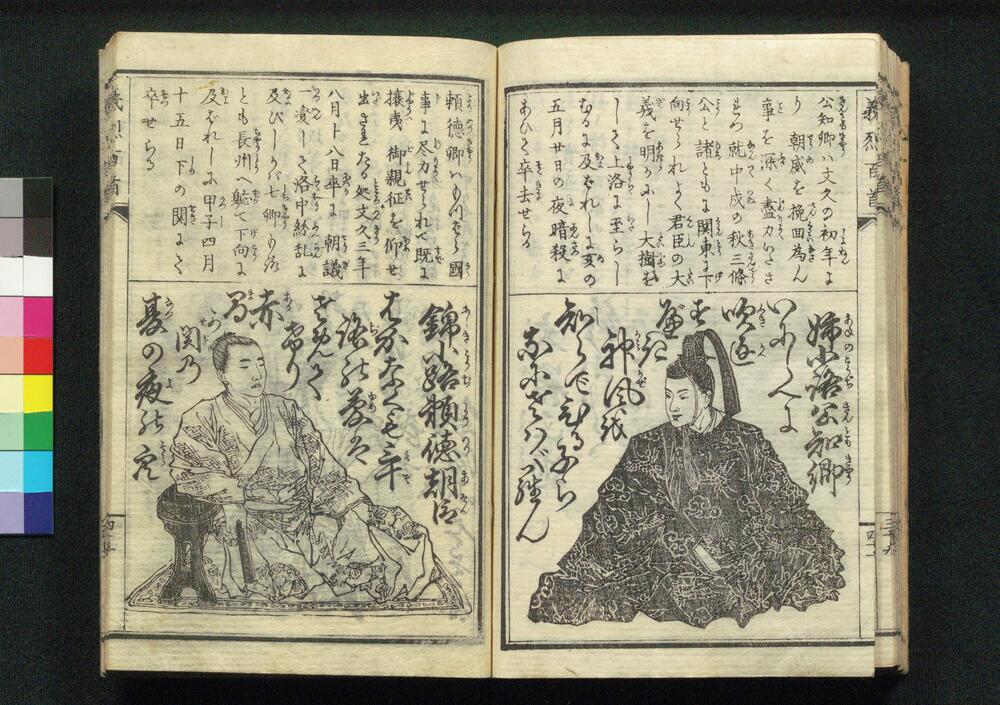 義烈百首
公知卿ハ文久の初年よ
り朝威を挽回為ん
事を深く盡力いたさ
れつ就中戌の秋三條
公と諸ともに関東に下
向せられよく君臣の大
義を明かにし大樹を
して上洛に至らし
むるに及ばれしに亥の
五月廿日の夜暗殺に
あひて卒去せらる
姉小路公知卿
いにしへに
吹き
神風を
頼徳卿ハもつぱら國
事に尽力せられて既に
攘夷御親征を仰せ
出されたる処文久三年
八月十八日卒に朝議
一変して洛中紛乱に
及びしかバ七卿もろ
とも長州へ趣て下向に
及ばれしに甲子四月
十五日下の関にて
卒せらる
錦小路頼徳朝臣
はかなくも三年
の夢は
赤
間が
関乃
夏の夜の空
義烈百首